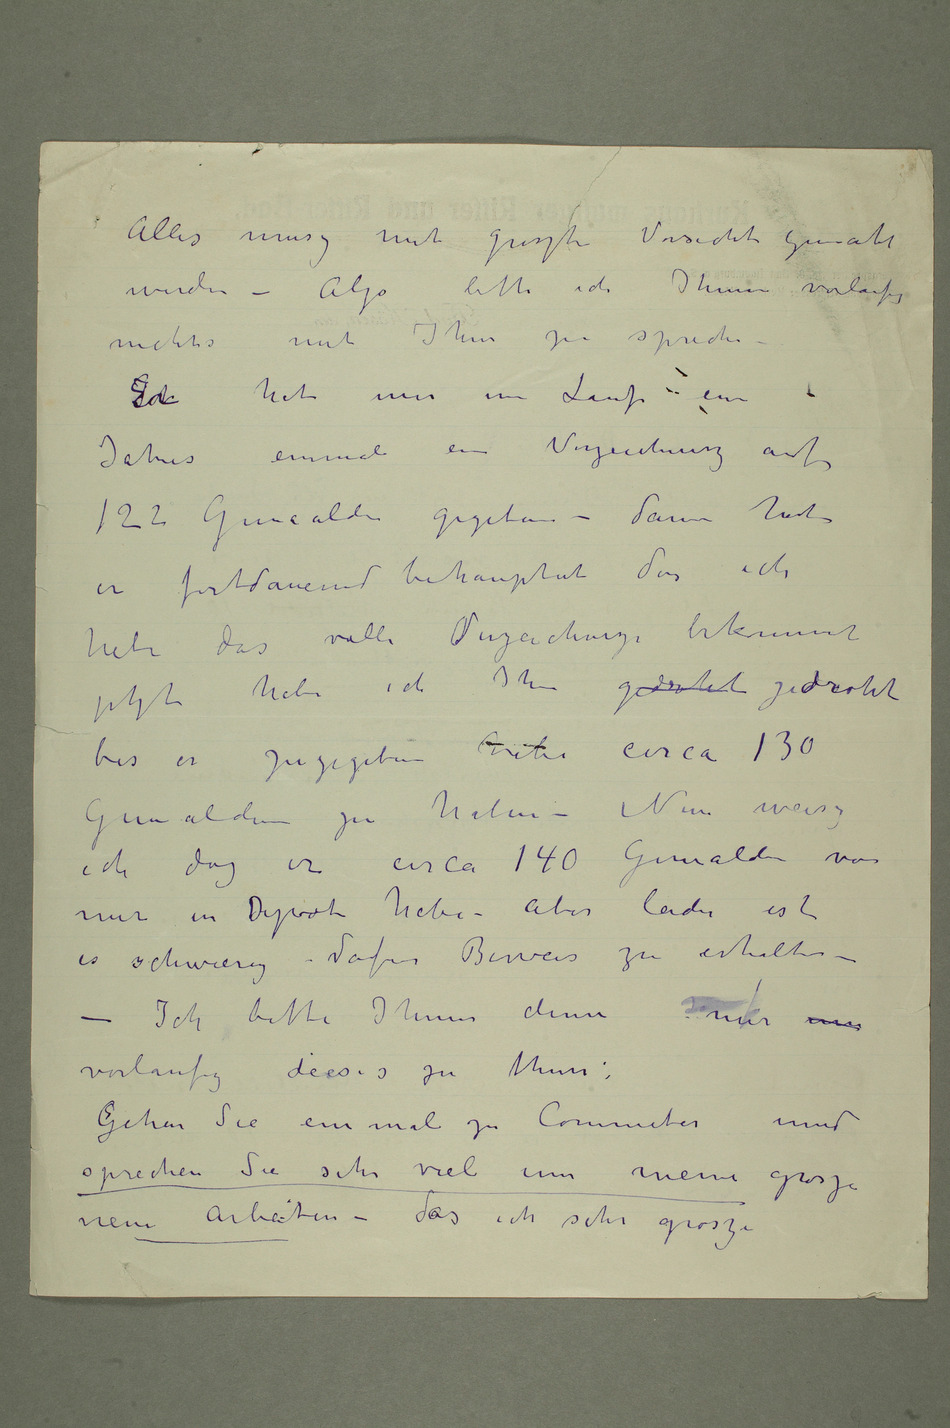 Alles musz mit groszte Vorsicht gemacht
werden – Also bitte ich Ihnen vorlaufig
nichts mit Ihm zu sprechen –
hat mir im Laufe ein
Jahres einmal ein Verzeichnisz auf
122 Gemaalden gegeben – dann hat
er fortdauernd behauptet das ich
habe das volle Verzeichnisz bekommet
jetzt habe ich Ihm gedrohet gedroht
bis er zugegeben hat circa 130
Gemalden zu haben – Nun weisz
ich dasz er circa 140 Gemalden von
mir in Depot habe – aber leider ist
es schwierig – dafur Beweis zu erhalten –
– Ich bitte Ihnen denn nur nur
vorlaufig dieses zu thun:
Gehen Sie einmal zu Commeter und
sprechen Sie sehr viel um meine grosze
neue Arbeiten – das ich sehr grosze